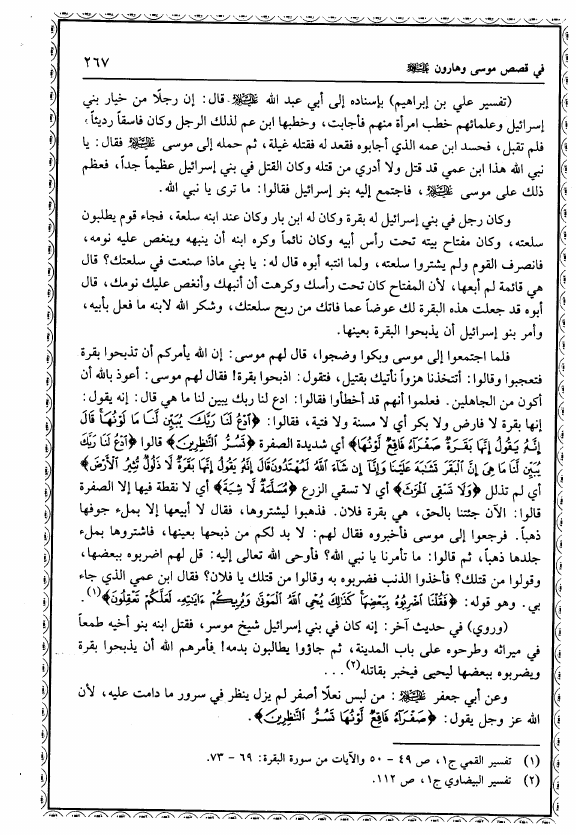 في قصص موسى وهارون عليهما السلام ٢٦٧
(تفسير علي بن إبراهيم) بإسناده إلى أبي عبد الله عليه السلام قال: إن رجلًا من خيار بني
إسرائيل وعلمائهم خطب امرأة منهم فأجابت، وخطبها ابن عم لذلك الرجل وكان فاسقاً رديئاً؛
فلم تقبل، فحسد ابن عمه الذي أجابوه فقعد له فقتله غيلة، ثم حمله إلى موسى عليه السلام فقال: يا
نبي الله هذا ابن عمي قد قتل ولا أدري من قتله وكان القتل في بني إسرائيل عظيماً جداً، فعظم
ذلك على موسى عليه السلام، فاجتمع إليه بنو إسرائيل فقالوا: ما ترى يا نبي الله.
وكان رجل في بني إسرائيل له بقرة وكان له ابن بار وكان عند ابنه سلعة، فجاء قوم يطلبون
سلعته، وكان مفتاح بيته تحت رأس أبيه وكان نائماً وكره ابنه أن ينبهه وينغص عليه نومه،
فانصرف القوم ولم يشتروا سلعته، ولما انتبه أبوه قال له: يا بني ماذا صنعت في سلعتك؟ قال
هي قائمة لم أبعها، لأن المفتاح كان تحت رأسك وكرهت أن أنبهك وأنغص عليك نومك، قال
أبوه قد جعلت هذه البقرة لك عوضاً عما فاتك من ربح سلعتك، وشكر الله لابنه ما فعل بأبيه،
وأمر بنو إسرائيل أن يذبحوا البقرة بعينها.
فلما اجتمعوا إلى موسى وبكوا وضجوا، قال لهم موسى: إن الله يأمركم أن تذبحوا بقرة
فتعجبوا وقالوا: أتتخذنا هزواً نأتيك بقتيل، فتقول: اذبحوا بقرة! فقال لهم موسى: أعوذ بالله أن
أكون من الجاهلين. فعلموا أنهم قد أخطأوا فقالوا: ادع لنا ربك يبين لنا ما هي قال: إنه يقول:
إنها بقرة لا فارض ولا بكر أي لا مسنة ولا فتية، فقالوا: ﴿ٱدْعُ لَنَا رَبَّكَ يُبَيِّن لَّنَا مَا لَوْنُهَاۚ قَالَ
إِنَّهُۥ يَقُولُ إِنَّهَا بَقَرَةٌ صَفْرَآءُ فَاقِعٌ لَّوْنُهَا﴾ أي شديدة الصفرة ﴿تَسُرُّ ٱلنَّٰظِرِينَ﴾ قالوا ﴿ٱدْعُ لَنَا رَبَّكَ
يُبَيِّن لَّنَا مَا هِىَ إِنَّ ٱلْبَقَرَ تَشَٰبَهَ عَلَيْنَا وَإِنَّآ إِن شَآءَ ٱللَّهُ لَمُهْتَدُونَ قَالَ إِنَّهُۥ يَقُولُ إِنَّهَا بَقَرَةٌ لَّا ذَلُولٌ تُثِيرُ ٱلْأَرْضَ﴾
أي لم تذلل ﴿وَلَا تَسْقِى ٱلْحَرْثَ﴾ أي لا تسقي الزرع ﴿مُسَلَّمَةٌ لَّا شِيَةَ﴾ أي لا نقطة فيها إلا الصفرة
قالوا: الآن جئتنا بالحق، هي بقرة فلان. فذهبوا ليشتروها، فقال لا أبيعها إلا بملء جوفها
ذهباً. فرجعوا إلى موسى فأخبروه فقال لهم: لا بد لكم من ذبحها بعينها، فاشتروها بملء
جلدها ذهباً، ثم قالوا: ما تأمرنا يا نبي الله؟ فأوحى الله تعالى إليه: قل لهم اضربوه ببعضها،
وقولوا من قتلك؟ فأخذوا الذنب فضربوه به وقالوا من قتلك يا فلان؟ فقال ابن عمي الذي جاء
بي. وهو قوله: ﴿فَقُلْنَا ٱضْرِبُوهُ بِبَعْضِهَاۚ كَذَٰلِكَ يُحْىِ ٱللَّهُ ٱلْمَوْتَىٰ وَيُرِيكُمْ ءَايَٰتِهِۦ لَعَلَّكُمْ تَعْقِلُونَ﴾(١).
(وروي) في حديث آخر: إنه كان في بني إسرائيل شيخ موسر، فقتل ابنه بنو أخيه طمعاً
في ميراثه وطرحوه على باب المدينة، ثم جاؤوا يطالبون بدمه! فأمرهم الله أن يذبحوا بقرة
ويضربوه ببعضها ليحيى فيخبر بقاتله(٢)...
وعن أبي جعفر عليه السلام: من لبس نعلًا أصفر لم يزل ينظر في سرور ما دامت عليه، لأن
الله عز وجل يقول: ﴿صَفْرَآءُ فَاقِعٌ لَّوْنُهَا تَسُرُّ ٱلنَّٰظِرِينَ﴾.
(١) تفسير القمي ج١، ص ٤٩ - ٥٠ والآيات من سورة البقرة: ٦٩ - ٧٣.
(٢) تفسير البيضاوي ج١، ص ١١٢.